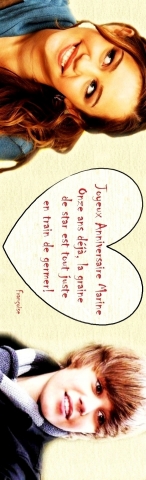 Joyeux Anniversaire Marine
Onze ans déjà, la graine
de star est tout juste
en train de germer!
Françoise